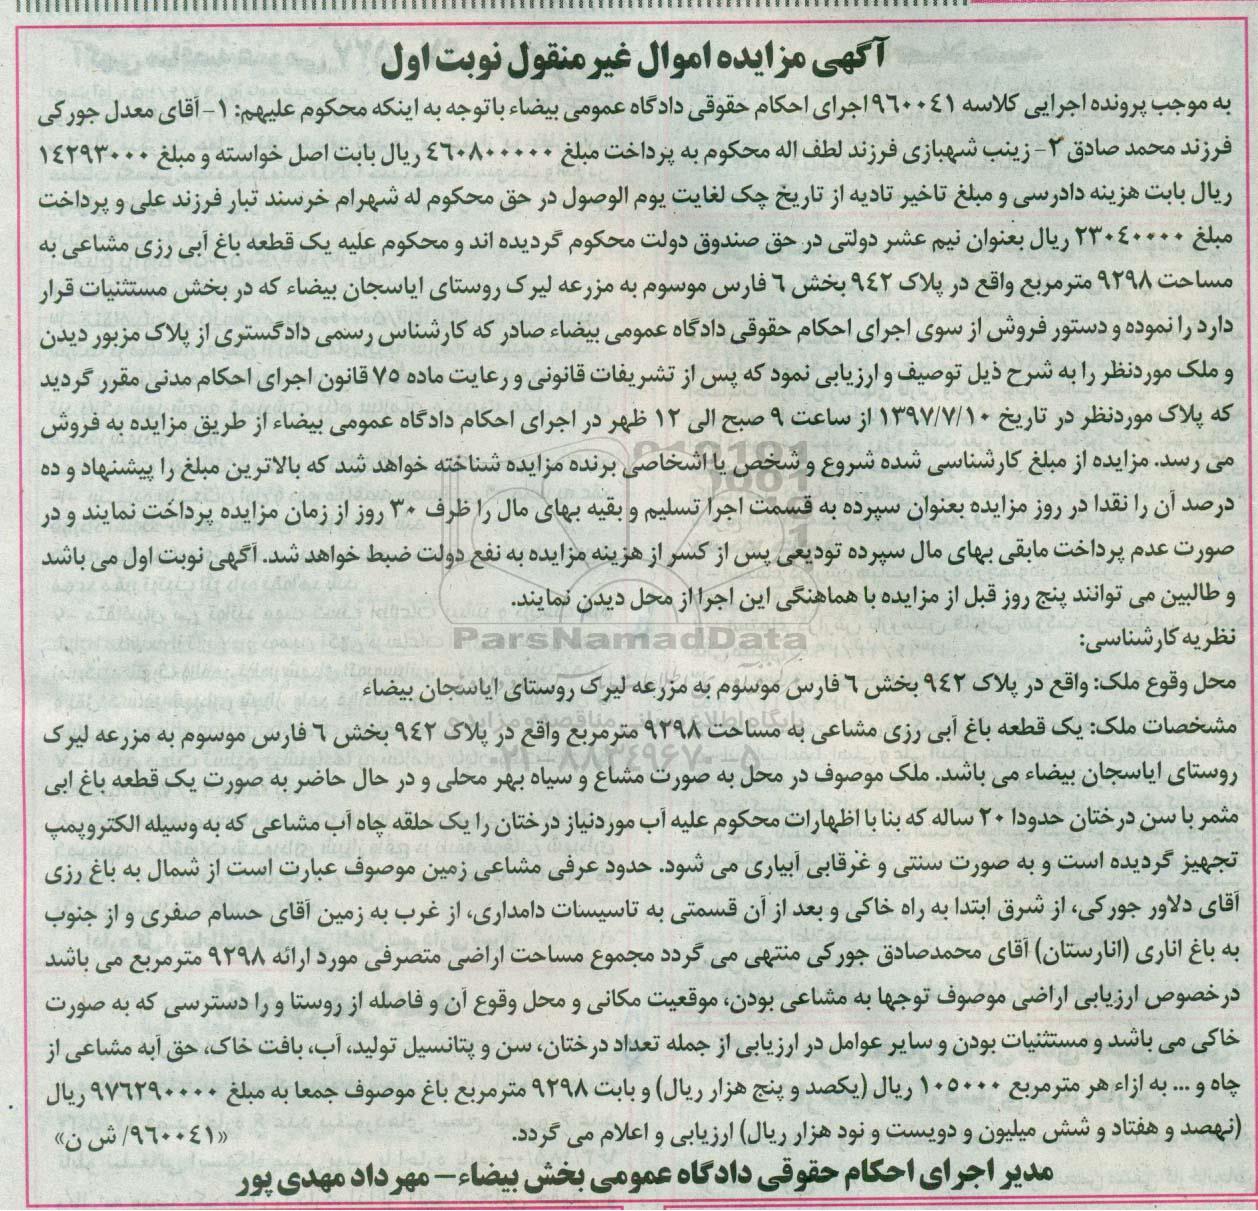 آگهی مزایده اموال غیر منقول نوبت اول
به موجب پرونده اجرایی کلاسه ۹۶۰۰۴۱ اجرای احکام حقوقی دادگاه عمومی بیضاء باتوجه به اینکه محکوم علیهم: ۱- آقای معدل جورکی
فرزند محمد صادق ۲- زینب شهبازی فرزند لطف اله محکوم به پرداخت مبلغ ۴۶۰۸۰۰۰۰۰ ریال بابت اصل خواسته و مبلغ ۱۴۲۹۳۰۰۰
ریال بابت هزینه دادرسی و مبلغ تاخیر تادیه از تاریخ چک لغایت یوم الوصول در حق محکوم له شهرام خرسند تبار فرزند علی و پرداخت
مبلغ ۲۳۰۴۰۰۰۰ ریال بعنوان نیم عشر دولتی در حق صندوق دولت محکوم گردیده اند و محکوم علیه یک قطعه باغ آبی رزی مشاعی به
مساحت ۹۲۹۸ مترمربع واقع در پلاک ۹۴۲ بخش ۶ فارس موسوم به مزرعه لیرک روستای ایاسجان بیضاء که در بخش مستثنیات قرار
دارد را نموده و دستور فروش از سوی اجرای احکام حقوقی دادگاه عمومی بیضاء صادر که کارشناس رسمی دادگستری از پلاک مزبور دیدن
و ملک موردنظر را به شرح ذیل توصیف و ارزیابی نمود که پس از تشریفات قانونی و رعایت ماده ۷۵ قانون اجرای احکام مدنی مقرر گردید
که پلاک موردنظر در تاریخ ۱۳۹۷/۷/۱۰ از ساعت ۹ صبح الی ۱۲ ظهر در اجرای احکام دادگاه عمومی بیضاء از طریق مزایده به فروش
می رسد. مزایده از مبلغ کارشناسی شده شروع و شخص یا اشخاصی برنده مزایده شناخته خواهد شد که بالاترین مبلغ را پیشنهاد و ده
درصد آن را نقدا در روز مزایده بعنوان سپرده به قسمت اجرا تسلیم و بقیه بهای مال را ظرف ۳۰ روز از زمان مزایده پرداخت نمایند و در
صورت عدم پرداخت مابقی بهای مال سپرده تودیعی پس از کسر از هزینه مزایده به نفع دولت ضبط خواهد شد. آگهی نوبت اول می باشد
و طالبین می توانند پنج روز قبل از مزایده با هماهنگی این اجرا از محل دیدن نمایند.
ParsNamadData
نظریه کارشناسی:
محل وقوع ملک: واقع در پلاک ۹۴۲ بخش ۶ فارس موسوم به مزرعه لیرک روستای ایاسجان بیضاء
مشخصات ملک: یک قطعه باغ آبی رزی مشاعی به مساحت ۹۲۹۸ مترمربع واقع در پلاک ۹۴۲ بخش ۶ فارس موسوم به مزرعه لیرک
روستای ایاسجان بیضاء می باشد. ملک موصوف در محل به صورت مشاع و سیاه بهر محلی و در حال حاضر به صورت یک قطعه باغ ابی
مثمر با سن درختان حدودا ۲۰ ساله که بنا با اظهارات محکوم علیه آب موردنیاز درختان را یک حلقه چاه آب مشاعی که به وسیله الکتروپمپ
تجهیز گردیده است و به صورت سنتی و غرقابی آبیاری می شود. حدود عرفی مشاعی زمین موصوف عبارت است از شمال به باغ رزی
آقای دلاور جورکی، از شرق ابتدا به راه خاکی و بعد از آن قسمتی به تاسیسات دامداری، از غرب به زمین آقای حسام صفری و از جنوب
به باغ اناری (انارستان) آقای محمدصادق جورکی منتهی می گردد مجموع مساحت اراضی متصرفی مورد ارائه ۹۲۹۸ مترمربع می باشد
درخصوص ارزیابی اراضی موصوف توجها به مشاعی بودن، موقعیت مکانی و محل وقوع آن و فاصله از روستا و را دسترسی که به صورت
خاکی می باشد و مستثنیات بودن و سایر عوامل در ارزیابی از جمله تعداد درختان، سن و پتانسیل تولید، آب، بافت خاک، حق آبه مشاعی از
چاه و ... به ازاء هر مترمربع ۱۰۵۰۰۰ ریال (یکصد و پنج هزار ریال) و بابت ۹۲۹۸ مترمربع باغ موصوف جمعا به مبلغ ۹۷۶۲۹۰۰۰۰ ریال
(نهصد و هفتاد و شش میلیون و دویست و نود هزار ریال) ارزیابی و اعلام می گردد. «۹۶۰۰۴۱/ ش ن»
مدیر اجرای احکام حقوقی دادگاه عمومی بخش بیضاء- مهرداد مهدی پور